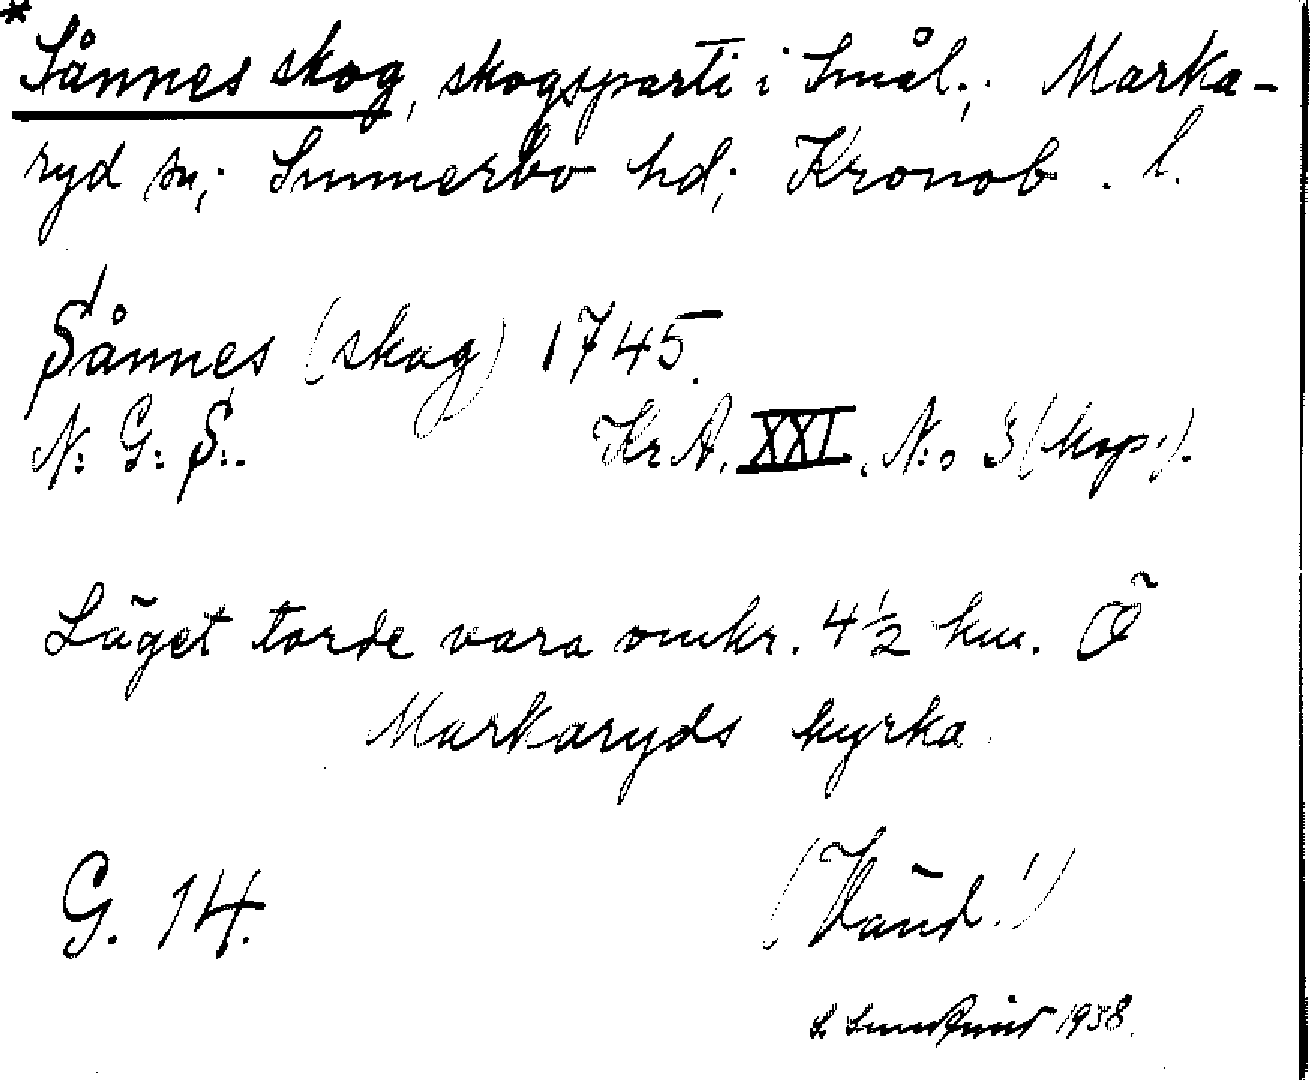 *Sånnes skog, skogsparti i Smål.; Marka-
ryd sn; Sunnerbo hd; Kronob. l.
Sånnes (skog) 1745
N: G: S:. Kr A. XXI. N:o 3 (kop.).
Läget torde vara omkr. 4 1/2 km. Ö
Markaryds kyrka.
G. 14.
(Vänd!)
1938.